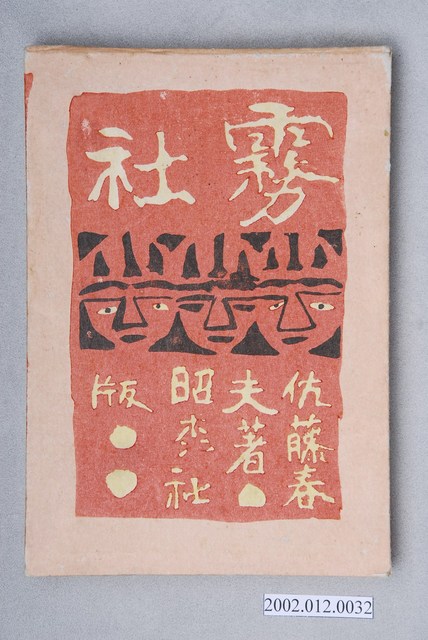 霧社
佐藤春
夫著
昭森社
版
2002.012.0032